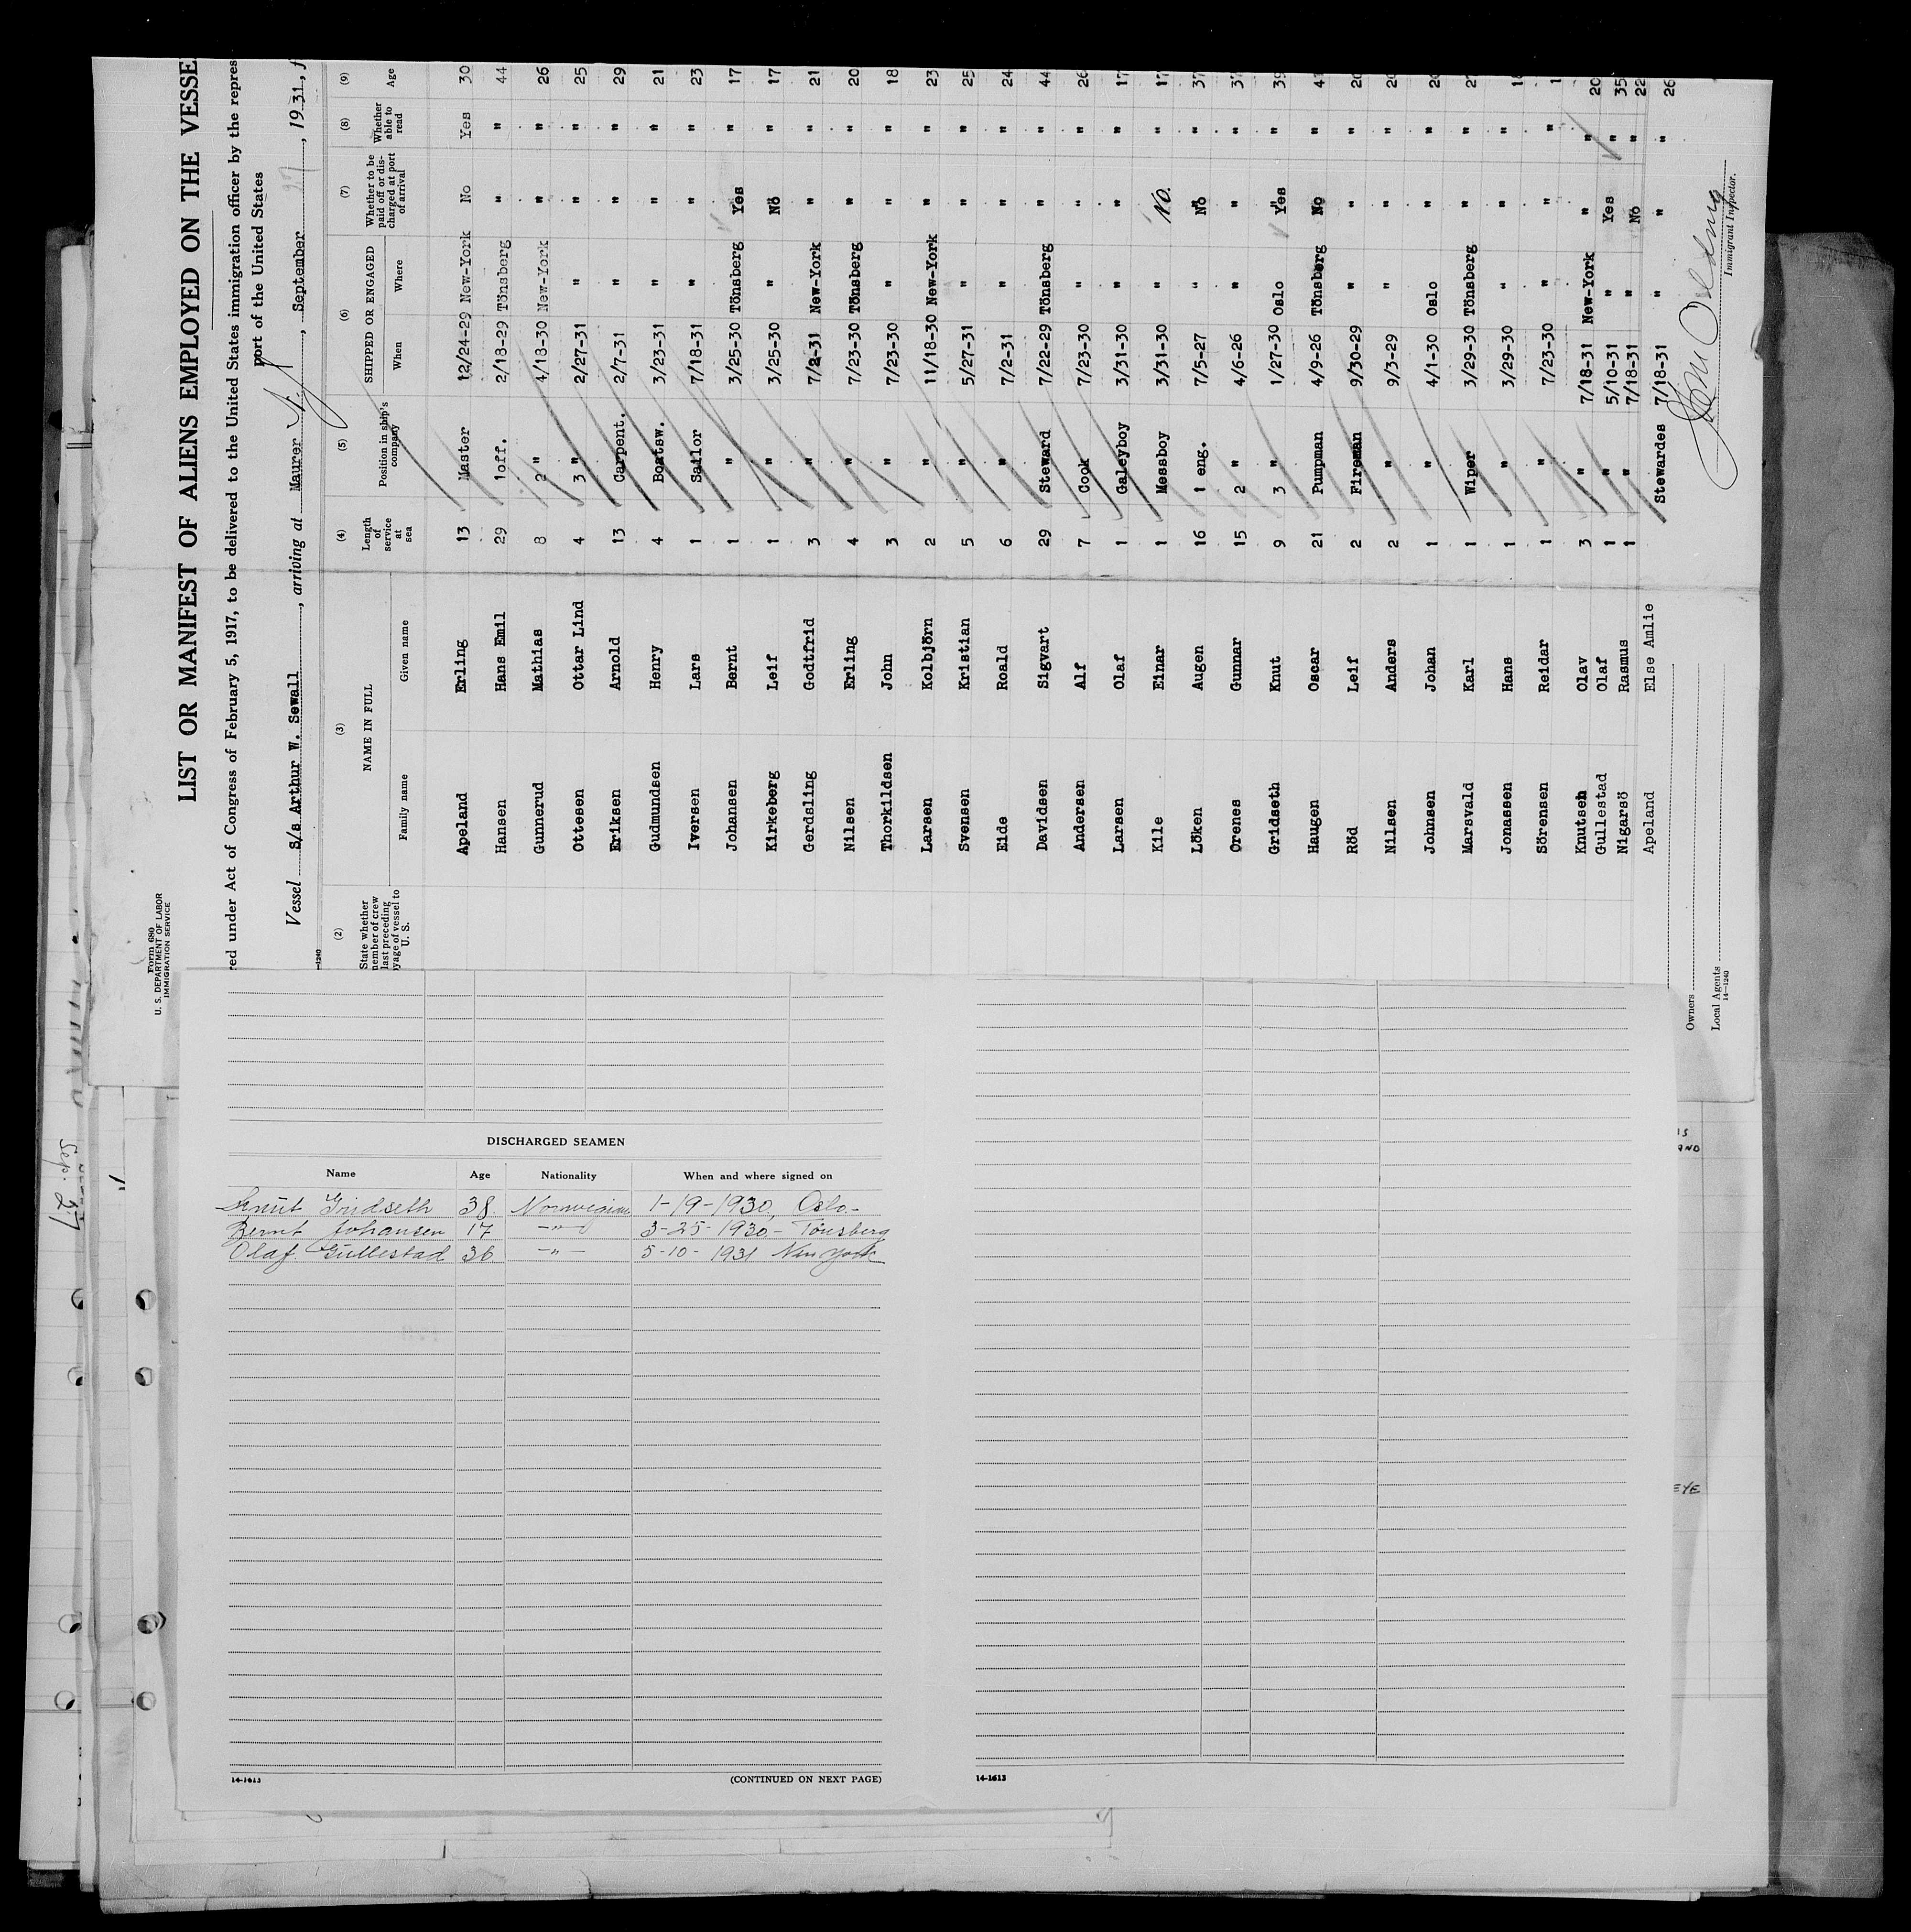 Form 680
U. S. DEPARTMENT OF LABOR
IMMIGRATION SERVICE
LIST OR MANIFEST OF ALIENS EMPLOYED ON THE VESSE
red under Act of Congress of February 5, 1917, to be delivered to the United States immigration officer by the repres
port of the United States
Vessel S/s Arthur W. Sewall, arriving at Maurer, September 27, 1931, f
14—1240
(2) (3) (4) (5) (6) (7) (8) (9)
State whether member of crew last preceding voyage of vessel to U. S. NAME IN FULL Length of service at sea Position in ship's company SHIPPED OR ENGAGED Whether to be paid off or discharged at port of arrival Whether able to read Age
Family name Given name When Where
Apeland Erling 13 Master 12/24-29 New-York No Yes 30
Hansen Hans Emil 29 1off. 2/18-29 Tönsberg " " 44
Gunnerud Mathias 8 2 " 4/18-30 New-York " " 26
Ottesen Ottar Lind 4 3 " 2/27-31 " " " 25
Eriksen Arnold 13 Carpent. 2/7-31 " " " 29
Gudmundsen Henry 4 Boatsw. 3/23-31 " " " 21
Iversen Lars 1 Sailor 7/18-31 " " " 23
Johansen Bernt 1 " 3/25-30 Tönsberg Yes " 17
Kirkeberg Leif 1 " 3/25-30 " No " 17
Gerdsling Godtfrid 3 " 7/2-31 New-York " " 21
Nilsen Erling 4 " 7/23-30 Tönsberg " " 20
Thorkildsen John 3 " 7/23-30 " " " 18
Larsen Kolbjörn 2 " 11/18-30 New-York " " 23
Svensen Kristian 5 " 5/27-31 " " " 25
Eide Roald 6 " 7/2-31 " " " 24
Davidsen Sigvart 29 Steward 7/22-29 Tönsberg " " 44
Andersen Alf 7 Cook 7/23-30 " " " 26
Larsen Olaf 1 Galeyboy 3/31-30 " " " 17
Kile Einar 1 Messboy 3/31-30 " No. " 17
Löken Augen 16 1 eng. 7/5-27 " No " 37
Grenes Gunnar 15 2 " 4/6-26 " " " 37
Gridseth Knut 9 3 " 1/27-30 Oslo Yes " 39
Haugen Oscar 21 Pumpman 4/9-26 Tönsberg No " 41
Röd Leif 2 Fireman 9/30-29 " " " 20
Nilsen Anders 2 " 9/3-29 " " " 20
Johnsen Johan 1 " 4/1-30 Oslo " " 20
Marsvald Karl 1 Wiper 3/29-30 Tönsberg " " 27
Jonassen Hans 1 " 3/29-30 " " " 18
Sörensen Reidar 1 " 7/23-30 " " "
Knutsen Olav 3 " 7/18-31 New-York " " 20
Gullestad Olaf 1 " 5/10-31 " Yes " 35
Nigarsö Rasmus 1 " 7/18-31 " No " 22
Apeland Else Amlie Stewardes 7/18-31 " " " 26
Immigrant Inspector.
Owners
Local Agents
14—1240
DISCHARGED SEAMEN
Name Age Nationality When and where signed on
Knut Gridseth 38 Norwegian 1-19-1930, Oslo-
Bernt Johansen 17 -"- 3-25-1930- Tönsberg
Olaf Gullestad 36 -"- 5-10-1931 New York
14-1613 (CONTINUED ON NEXT PAGE)
14-1613
Sep. 27
EYE